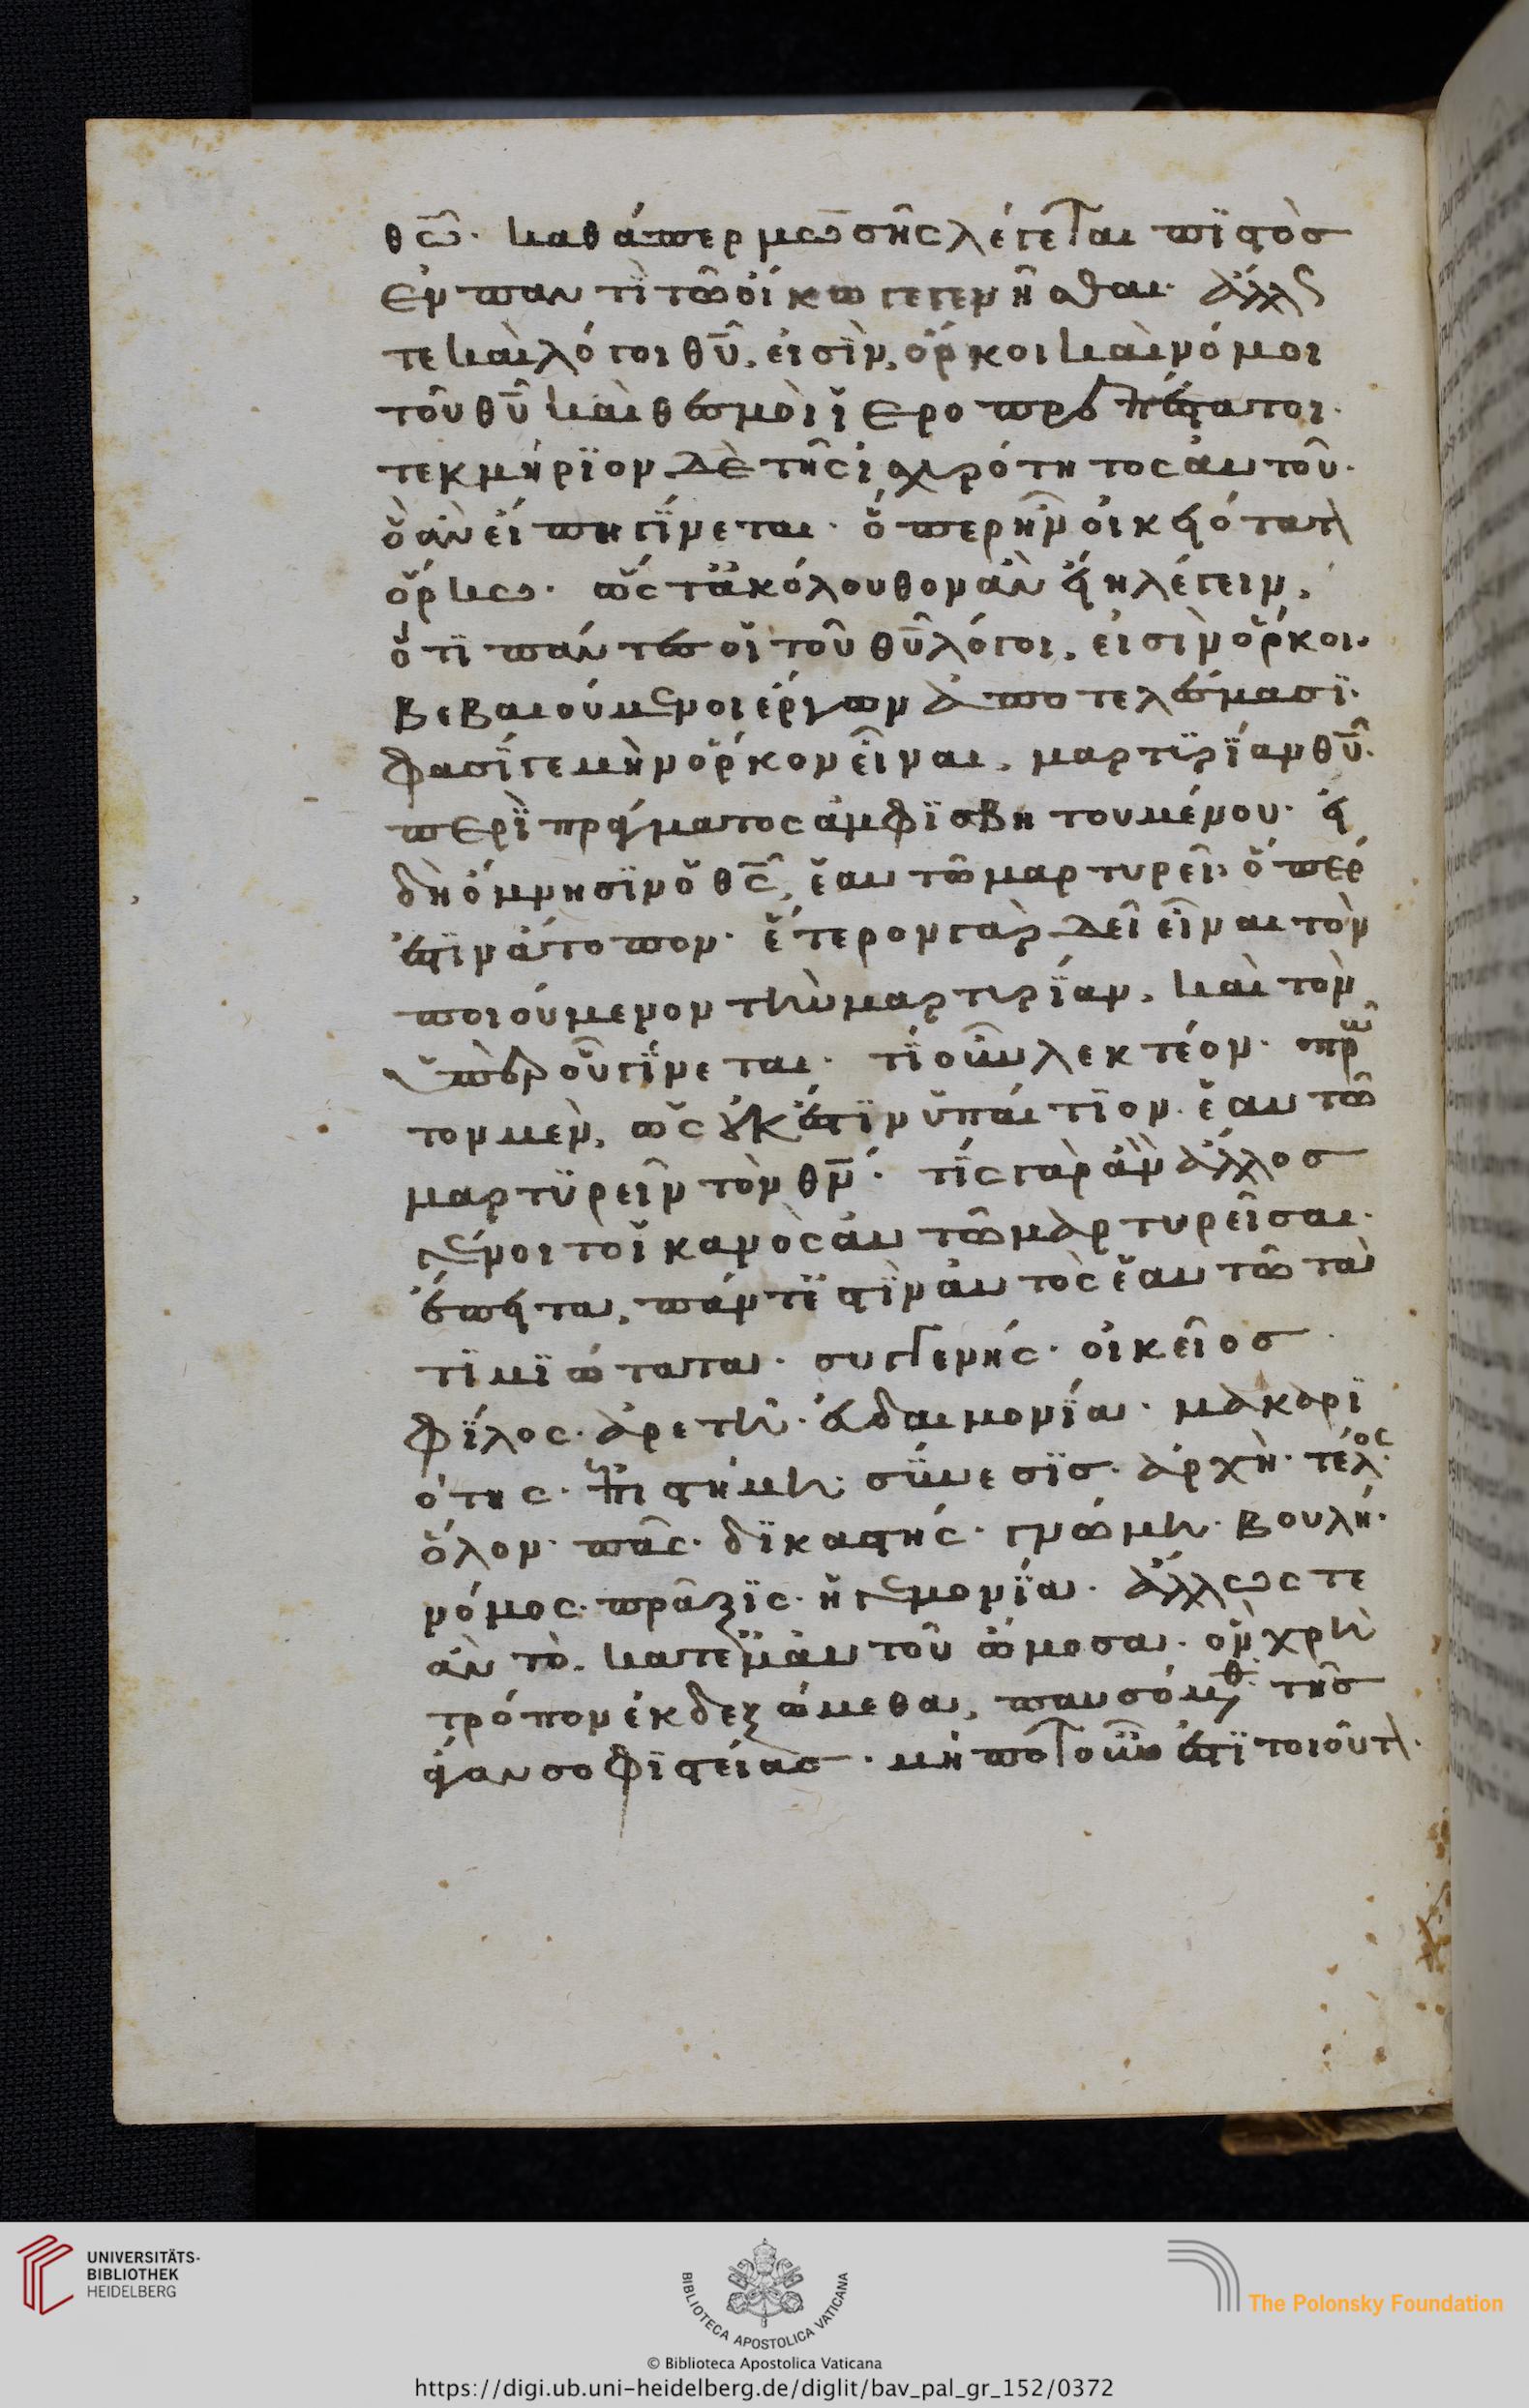 θω̅. καθάπερ μωσῆς λέγεται πϊστὸσ
ἐν παντὶ τῶ οἴκω γεγενῆσθαι. ἄλλς
τε καὶ λόγοι θυ̅, εἰσὶν, ὅρκοι καὶ νόμοι
τοῦ θυ̅ καὶ θεσμοὶ ἱεροπρεπέστατοι.
τεκμήρϊον δὲ τῆς ἰσχυρότητος αυτοῦ.
ὃ ἂν εἴπη γίνεται. ὅπερ ἦν οἰκειότατ
ὅρκω. ὥς τ᾽ ἀκόλουθον ἂν εἴη λέγειν,
ὅτι πάντες οἱ τοῦ θυ̅ λόγοι, εἰσὶν ὅρκοι.
βεβαιούμενοι έργων ἀποτελέσμασϊ.
φασί γε μὴν ὅρκον εἶναι, μαρτυρίαν θυ̅.
περὶ πράγματος ἀμφϊσβητουμένου. εἰ
δὴ ὄμνησιν ὁ θς̅, ἑαυτῶ μαρτυρεῖ, ὅπερ
ἐστιν άτοπον. ἕτερον γὰρ δεῖ εἶναι τὸν
ποιούμενον τὴν μαρτυρίαν, καὶ τὸν
ὑπὲρ οὗ γίνεται. τί οὖν λεκτέον. πρῶ
τον μεν, ὡς οὐκ ἔστιν ὑπαίτϊον. ἑαυτῶ
μαρτυρεῖν τὸν θν̅. τίς γὰρ ἂν ἄλλοσ
γένοιτο ἱκανὸς αυτῶ μαρτυρεῖσαι.
ἔπειτα, πάντἐστὶν αὐτὸς ἑαυτῶ τὰ
τιμιώτατα. συγγενής. οἰκεῖοσ
φίλος. ἀρετὴ. ευδαιμονία. μακαρϊ
ότης. ἐπιστήμη. σύνεσϊσ. ἀρχὴ. τέλος.
ὅλον. πᾶς. δϊκαστής. γνώμη. βουλή.
νόμος. πρᾶξϊς. ἡγεμονία. ἄλλως τε
ἂν τὸ. κατεμαυτοῦ ώμοσα. ὃν χρὴ
τρόπον ἐκδεξώμεθα, παυσόμεθ. τῆσ
άγαν σοφϊστείασ. μή ποτ οὖν ἐστϊ τοιοῦτ.
UNIVERSITÄTS-
BIBLIOTHEK
HEIDELBERG
BIBLIOTECA APOSTOLICA VATICANA
The Polonsky Foundation
© Biblioteca Apostolica Vaticana
https://digi.ub.uni-heidelberg.de/diglit/bav_pal_gr_152/0372